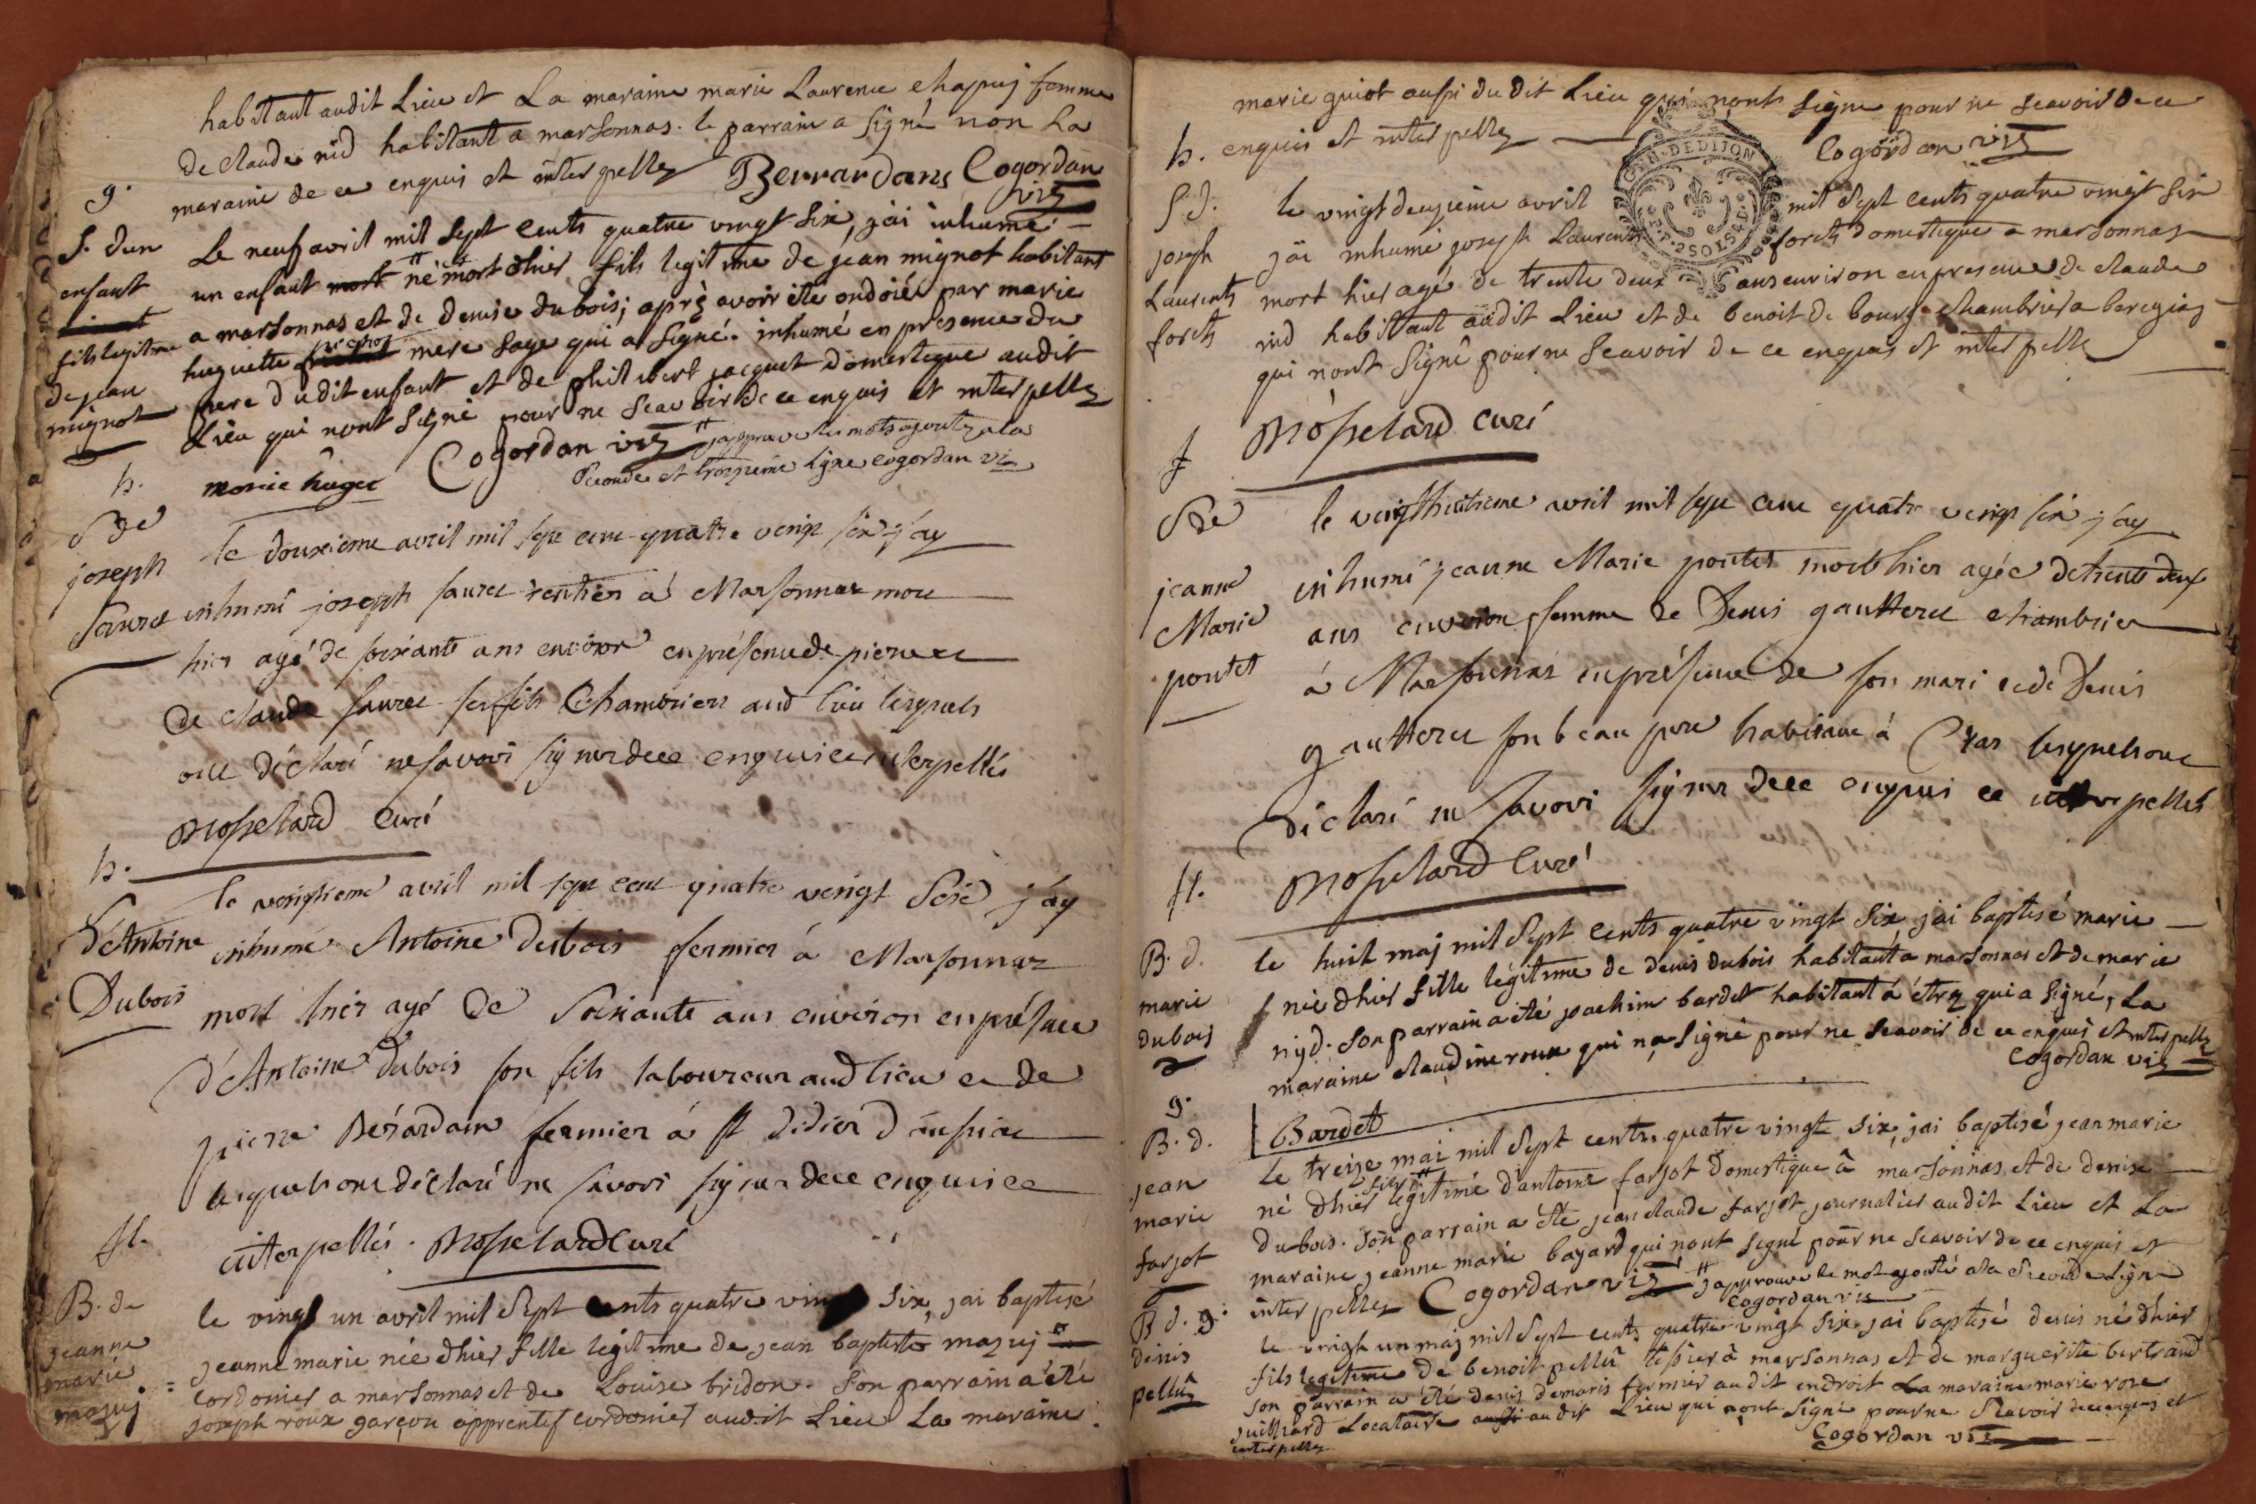 habitant audit Lieu et La maraine marie Laurence chapuj femme
de claude nid habitant a marsonnas. le parrain a signé non La
maraine de ce enquis et interpellez Berrardans Cogordan
vic
g.
S. dun
enfant
fils legitime
de jean
mignot
Le neuf avril mil sept cents quatre vingt six, j'ai inhumé
un enfant mort né mort dhier fils legitime de jean mignot habitant
a marsonnas et de denise dubois; après avoir été ondoié par marie
huguette mere sage qui a signé. inhumé en presence du
pere dudit enfant et de philibert jacquet domestique audit
Lieu qui nont signé pour ne scavoir de ce enquis et interpellez
marie huguet Cogordan vic japprouve les mots ajoutez a la
seconde et troisieme ligne cogordan vic
h.
S de
joseph
faures
le douzieme avril mil sept cent quatre vingt six j'ay
inhumé joseph faures rentier à Marsonnas mort
hier agé de soixante ans environ en présence de pierre et
de claude faures ses fils Chambriers aud lieu lesquels
ont déclaré ne savoir signer de ce enquis et interpellés
mosselard curé
h.
S
d'Antoine
Dubois
le vingtieme avril mil sept cent quatre vingt Sixe j'ay
inhumé Antoine Dubois fermier à Marsonnas
mort hier agé de Soixante ans environ en présence
d'Antoine Dubois son fils laboureur aud lieu et de
pierre Bérardan fermier à St Didier d'aussiat
lesquels ont déclaré ne savoir signer de ce enquis et
interpellés. mosselard curé
fl.
B. de
jeanne
marie
mazuj
le vingt un avril mil sept cents quatre vingt six, jai baptisé
jeanne marie née dhier fille legitime de jean baptiste mazuj
cordonier a marsonnas et de Louise bridon. son parrain a été
joseph roux garçon apprentif cordonier audit Lieu La maraine
marie guiot aussi du dit Lieu qui nont signé pour ne scavoir de ce
enquis et interpellez Cogordan vic
GEN. DE DIJON
h.
S. d.
joseph
Laurents
forets
le vingt deuzieme avril mil sept cents quatre vingt six
j'ai inhumé joseph Laurents forets domestique a marsonnas
mort hier agé de trente deux ans environ en presence de claude
nid habitant audit Lieu et de benoit de bourg chambrier a bereziaz
qui nont signé pour ne scavoir de ce enquis et interpellé
mosselard curé
f
S de
jeanne
Marie
pontet
le vingthuitieme avril mil sept cent quatre vingt six j'ay
inhumé jeanne Marie pontet morte hier agée de trente deux
ans environ femme de Denis gautteret chambrier
à Marsonnas en présence de son mari et de Denis
gautteret son beau pere habitant à Cras lesquels ont
déclaré ne savoir signer de ce enquis et interpellés
mosselard curé
fl.
B. d.
marie
dubois
le huit maj mil sept cents quatre vingt six, jai baptisé marie
née dhier fille légitime de denis dubois habitant a marsonnas et de marie
niyd. son parrain a été joachim bardet habitant á étrez qui a signé, La
maraine claudine roux qui na signé pour ne scavoir de ce enquis et interpellez
cogordan vic
Bardet
g.
B. d.
jean
marie
farjot
le treize mai mil sept cents quatre vingt six, jai baptisé jean marie
né dhier fils legitime d'antoine farjot domestique à marsonnas et de denise
dubois. son parrain a été jean claude farjot journalier audit Lieu et La
maraine jeanne marie bayard qui nont signé pour ne scavoir de ce enquis et
interpellez Cogordan vic japprouve le mot ajouté a la seconde ligne
Cogordan vic
B d. g.
denis
pellûz
le vingt un maj mil sept cents quatre vingt six, jai baptisé denis né dhier
fils legitime de benoit pellû tissier à marsonnas et de marguerite bertrand
son parrain a été denis demaris fermier au dit endroit La maraine marie rose
juilliard Locataire audit Lieu qui nont signé pour ne scavoir de ce enquis et
interpellez Cogordan vic